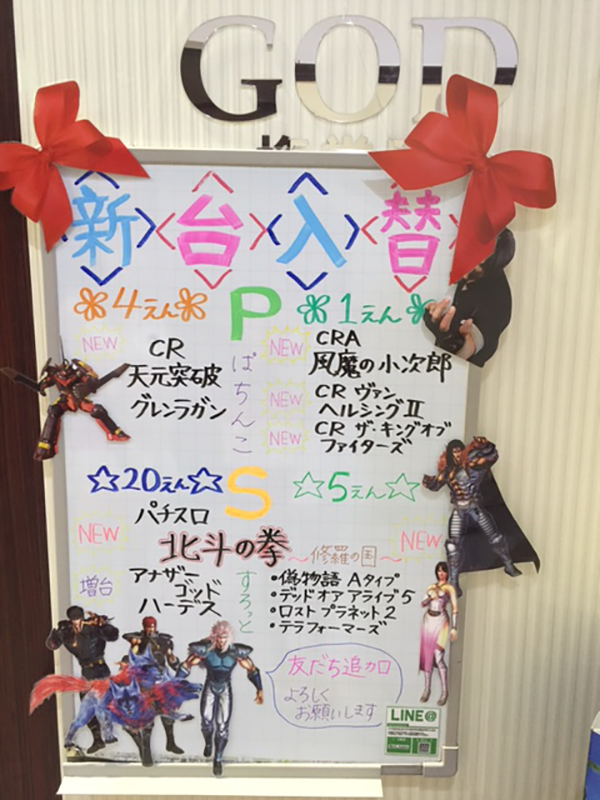 GOD
新台入替
❀4えん❀
P
❀1えん❀
ぱちんこ
NEW
CR
天元突破
グレンラガン
NEW
CRA
風魔の小次郎
NEW
CR ヴァン
ヘルシングII
NEW
CR ザ・キングオブ
ファイターズ
☆20えん☆
S
☆5えん☆
すろっと
NEW
パチスロ
北斗の拳
~修羅の国~
NEW
増台
アナザー
ゴッド
ハーデス
・偽物語 Aタイプ
・デッドオアアライブ5
・ロストプラネット2
・テラフォーマーズ
友だち追加
よろしく
お願いします
LINE@